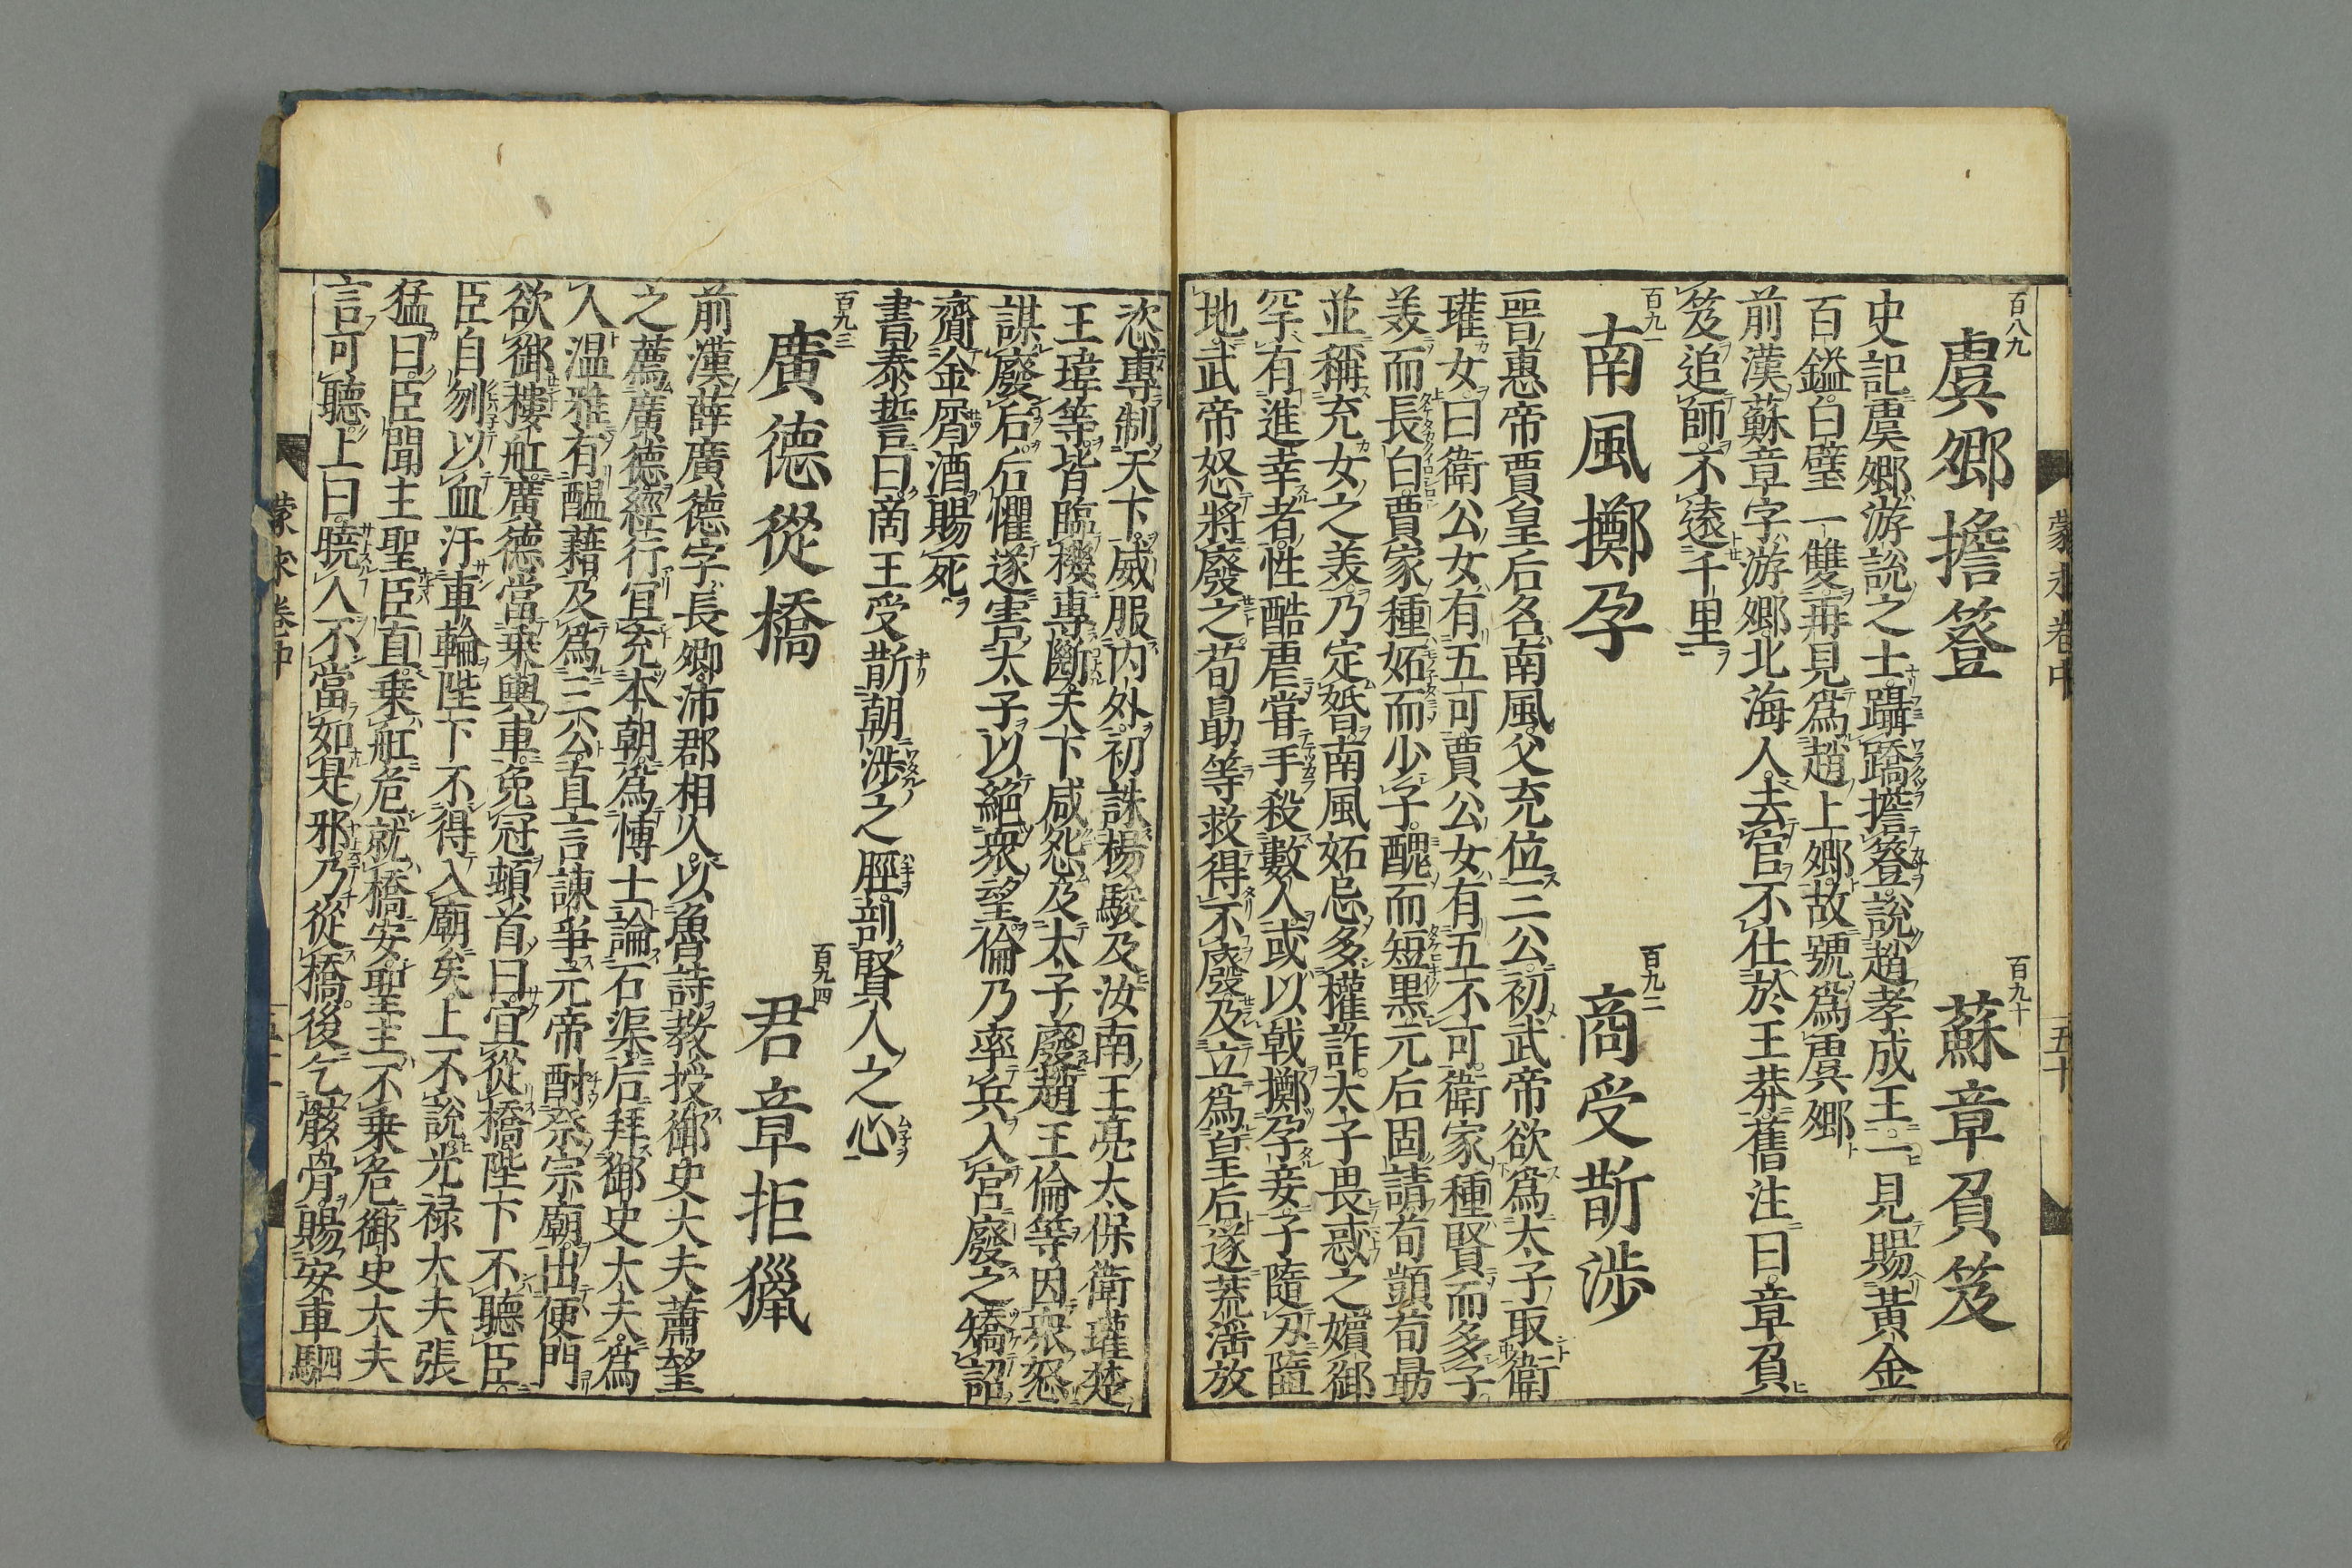 蒙求卷中
五十
百八九
虞卿擔簦
百九十
蘇章負笈
史記虞卿游說之士躡蹻擔簦說趙孝成王一見賜黃金
百鎰白璧一雙再見爲趙上卿故號爲虞卿
前漢蘇章字游卿北海人去官不仕於王莽舊注曰章負
笈追師不遠千里
百九一
南風擲孕
百九二
商受斮涉
晉惠帝賈皇后名南風父充位三公初武帝欲爲太子取衛
瓘女曰衛公女有五可賈公女有五不可衛家種賢而多子
美而長白賈家種妬而少子醜而短黑元后固請荀顗荀勗
並稱充女之美乃定婚南風妬忌多權詐太子畏惑之嬪御
罕有進幸者性酷虐甞手殺數人或以戟擲孕妾子隨刃墮
地武帝怒將廢之荀勗等救得不廢及立爲皇后遂荒淫放
恣專制天下威服内外初誅楊駿及汝南王亮太保衛瓘楚
王瑋等皆臨機專斷天下咸怨及太子廢趙王倫等因衆怒
謀廢后后懼遂害太子以絕衆望倫乃率兵入宮廢之矯詔
齎金屑酒賜死
書泰誓曰商王受斮朝涉之脛剖賢人之心
百九三
廣德從橋
百九四
君章拒獵
前漢薛廣德字長卿沛郡相人以魯詩教授御史大夫蕭望
之薦廣德經行宜充本朝爲博士論石渠后拜御史大夫爲
人温雅有醞藉及爲三公直言諫爭元帝酎祭宗廟出便門
欲御樓舡廣德當乗輿車免冠頓首曰宜從橋陛下不聽臣
臣自刎以血汙車輪陛下不得入廟矣上不說光禄大夫張
猛曰臣聞主聖臣直乗舡危就橋安聖主不乗危御史大夫
言可聽上曰曉人不當如是邪乃從橋後乞骸骨賜安車駟
蒙求卷中